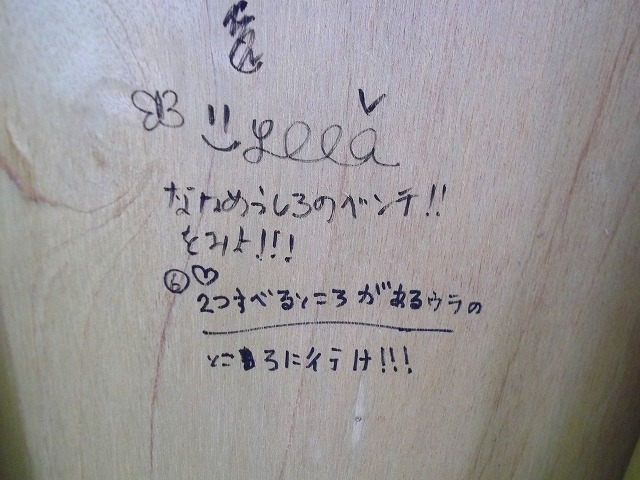 ななめうしろのベンチ!!
をみよ!!!
⑥♡
2つすべるところがあるウラの
ところに行け!!!